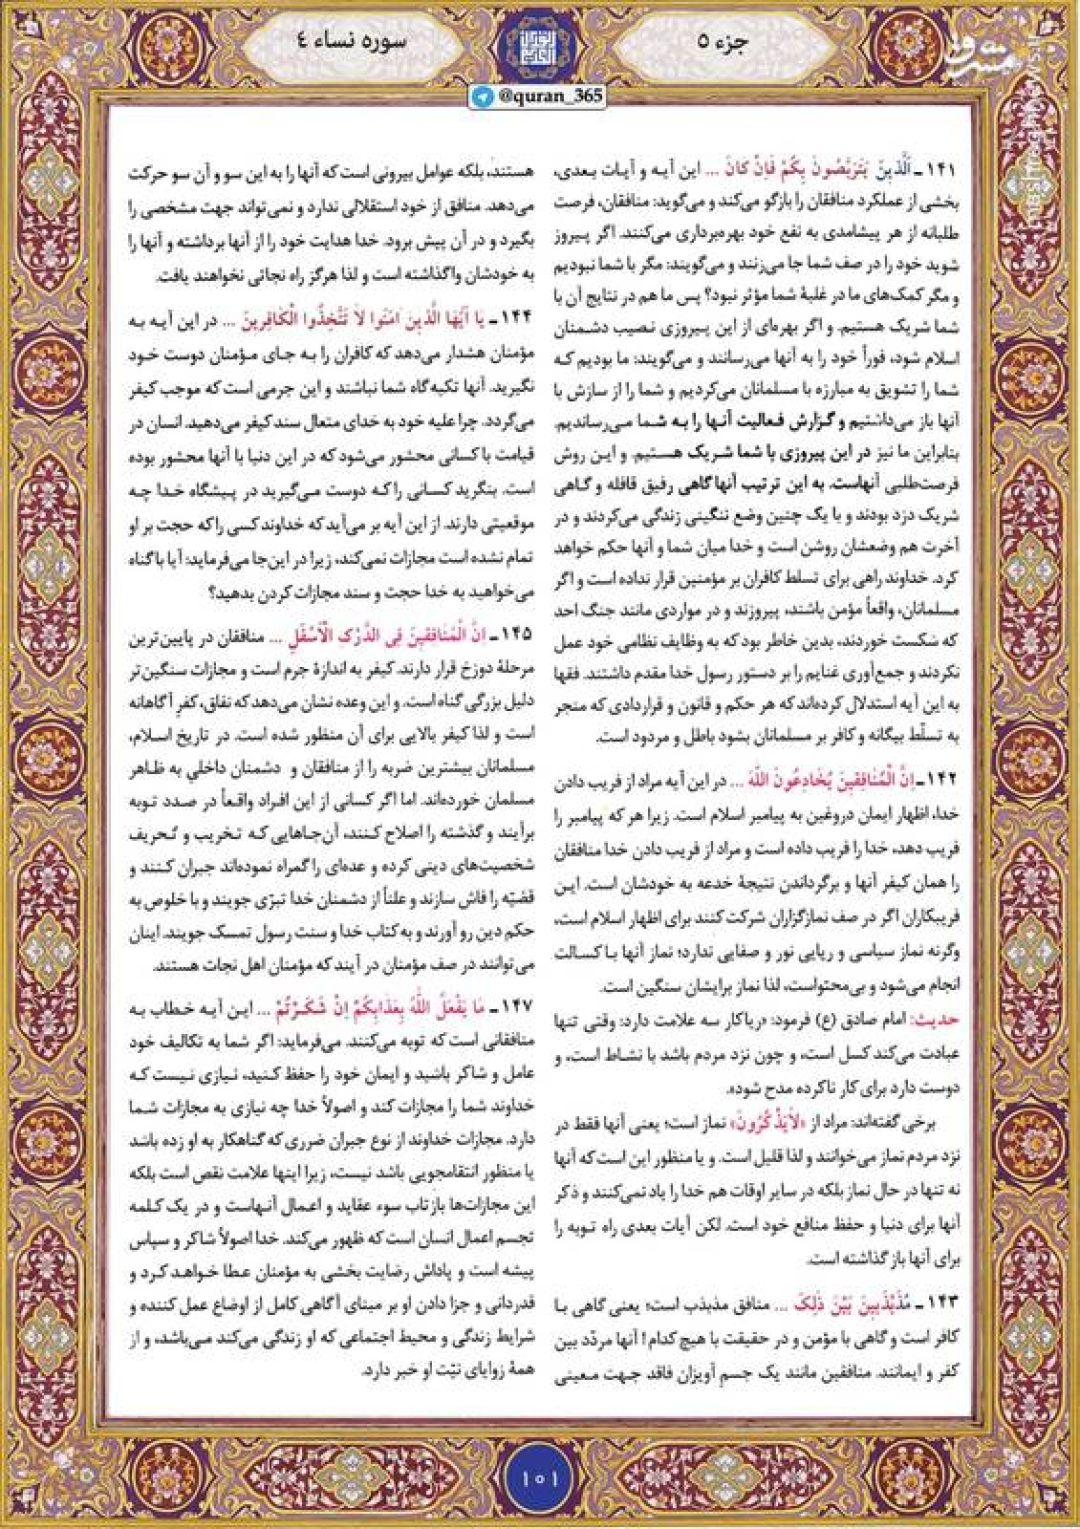 جزء ۵
سوره نساء ۴
@quran_365
۱۴۱ـ اَلَّذینَ یَتَرَبَّصُونَ بِکُمْ فَاِنْ کانَ ... این آیه و آیات بعدی،
بخشی از عملکرد منافقان را بازگو می‌کند و می‌گوید: منافقان، فرصت
طلبانه از هر پیشامدی به نفع خود بهره‌برداری می‌کنند. اگر پیروز
شوید خود را در صف شما جا می‌زنند و می‌گویند: مگر با شما نبودیم
و مگر کمک‌های ما در غلبهٔ شما مؤثر نبود؟ پس ما هم در نتایج آن با
شما شریک هستیم. و اگر بهره‌ای از این پیروزی نصیب دشمنان
اسلام شود، فوراً خود را به آنها می‌رسانند و می‌گویند: ما بودیم که
شما را تشویق به مبارزه با مسلمانان می‌کردیم و شما را از سازش با
آنها باز می‌داشتیم و گزارش فعالیت آنها را به شما می‌رساندیم.
بنابراین ما نیز در این پیروزی با شما شریک هستیم. و این روش
فرصت‌طلبی آنهاست. به این ترتیب آنها گاهی رفیق قافله و گاهی
شریک دزد بودند و با یک چنین وضع ننگینی زندگی می‌کردند و در
آخرت هم وضعشان روشن است و خدا میان شما و آنها حکم خواهد
کرد. خداوند راهی برای تسلط کافران بر مؤمنین قرار نداده است و اگر
مسلمانان، واقعاً مؤمن باشند، پیروزند و در مواردی مانند جنگ احد
که شکست خوردند، بدین خاطر بود که به وظایف نظامی خود عمل
نکردند و جمع‌آوری غنایم را بر دستور رسول خدا مقدم داشتند. فقها
به این آیه استدلال کرده‌اند که هر حکم و قانون و قراردادی که منجر
به تسلّط بیگانه و کافر بر مسلمانان بشود باطل و مردود است.
۱۴۲ـ اِنَّ الْمُنافِقینَ یُخادِعُونَ اللّهَ ... در این آیه مراد از فریب دادن
خدا، اظهار ایمان دروغین به پیامبر اسلام است. زیرا هر که پیامبر را
فریب دهد، خدا را فریب داده است و مراد از فریب دادن خدا منافقان
را همان کیفر آنها و برگرداندن نتیجهٔ خدعه به خودشان است. این
فریبکاران اگر در صف نمازگزاران شرکت کنند برای اظهار اسلام است،
وگرنه نماز سیاسی و ریایی نور و صفایی ندارد؛ نماز آنها با کسالت
انجام می‌شود و بی‌محتواست، لذا نماز برایشان سنگین است.
حدیث: امام صادق (ع) فرمود: «ریاکار سه علامت دارد: وقتی تنها
عبادت می‌کند کسل است، و چون نزد مردم باشد با نشاط است، و
دوست دارد برای کار ناکرده مدح شود».
برخی گفته‌اند: مراد از «لایَذْکُرُونَ» نماز است؛ یعنی آنها فقط در
نزد مردم نماز می‌خوانند و لذا قلیل است. و یا منظور این است که آنها
نه تنها در حال نماز بلکه در سایر اوقات هم خدا را یاد نمی‌کنند و ذکر
آنها برای دنیا و حفظ منافع خود است. لکن آیات بعدی راه توبه را
برای آنها باز گذاشته است.
۱۴۳ـ مُذَبْذَبینَ بَیْنَ ذلِکَ ... منافق مذبذب است؛ یعنی گاهی با
کافر است و گاهی با مؤمن و در حقیقت با هیچ کدام! آنها مردّد بین
کفر و ایمانند. منافقین مانند یک جسمِ آویزان فاقد جهت معینی
هستند، بلکه عوامل بیرونی است که آنها را به این سو و آن سو حرکت
می‌دهد. منافق از خود استقلالی ندارد و نمی‌تواند جهت مشخصی را
بگیرد و در آن پیش برود. خدا هدایت خود را از آنها برداشته و آنها را
به خودشان واگذاشته است و لذا هرگز راه نجاتی نخواهند یافت.
۱۴۴ـ یا اَیُّهَا الَّذینَ امَنُوا لاتَتَّخِذُوا الْکافِرینَ ... در این آیه به
مؤمنان هشدار می‌دهد که کافران را به جای مؤمنان دوست خود
نگیرید. آنها تکیه‌گاه شما نباشند و این جرمی است که موجب کیفر
می‌گردد. چرا علیه خود به خدای متعال سند کیفر می‌دهید. انسان در
قیامت با کسانی محشور می‌شود که در این دنیا با آنها محشور بوده
است. بنگرید کسانی را که دوست می‌گیرید در پیشگاه خدا چه
موقعیتی دارند. از این آیه بر می‌آید که خداوند کسی را که حجت بر او
تمام نشده است مجازات نمی‌کند، زیرا در این‌جا می‌فرماید: آیا با گناه
می‌خواهید به خدا حجت و سند مجازات کردن بدهید؟
۱۴۵ـ اِنَّ الْمُنافِقینَ فِی الدَّرْکِ الْاَسْفَلِ ... منافقان در پایین‌ترین
مرحلهٔ دوزخ قرار دارند. کیفر به اندازهٔ جرم است و مجازات سنگین‌تر
دلیل بزرگی گناه است. و این وعده نشان می‌دهد که نفاق، کفرِ آگاهانه
است و لذا کیفر بالایی برای آن منظور شده است. در تاریخ اسلام،
مسلمانان بیشترین ضربه را از منافقان و دشمنان داخلیِ به ظاهر
مسلمان خورده‌اند. اما اگر کسانی از این افراد واقعاً در صدد توبه
برآیند و گذشته را اصلاح کنند، آن‌جاهایی که تخریب و تحریف
شخصیت‌های دینی کرده و عده‌ای را گمراه نموده‌اند جبران کنند و
قضیّه را فاش سازند و علناً از دشمنان خدا تبرّی جویند و با خلوص به
حکم دین رو آورند و به کتاب خدا و سنت رسول تمسک جویند. اینان
می‌توانند در صف مؤمنان در آیند که مؤمنان اهل نجات هستند.
۱۴۷ـ ما یَفْعَلُ اللّهُ بِعَذابِکُمْ اِنْ شَکَرْتُمْ ... این آیه خطاب به
منافقانی است که توبه می‌کنند. می‌فرماید: اگر شما به تکالیف خود
عامل و شاکر باشید و ایمان خود را حفظ کنید، نیازی نیست که
خداوند شما را مجازات کند و اصولاً خدا چه نیازی به مجازات شما
دارد. مجازات خداوند از نوع جبران ضرری که گناهکار به او زده باشد
یا منظور انتقامجویی باشد نیست، زیرا اینها علامت نقص است بلکه
این مجازات‌ها بازتاب سوء عقاید و اعمال آنهاست و در یک کلمه
تجسم اعمال انسان است که ظهور می‌کند. خدا اصولاً شاکر و سپاس
پیشه است و پاداش رضایت بخشی به مؤمنان عطا خواهد کرد و
قدردانی و جزا دادن او بر مبنای آگاهی کامل از اوضاع عمل کننده و
شرایط زندگی و محیط اجتماعی که او زندگی می‌کند می‌باشد، و از
همهٔ زوایای نیّت او خبر دارد.
۱۰۱